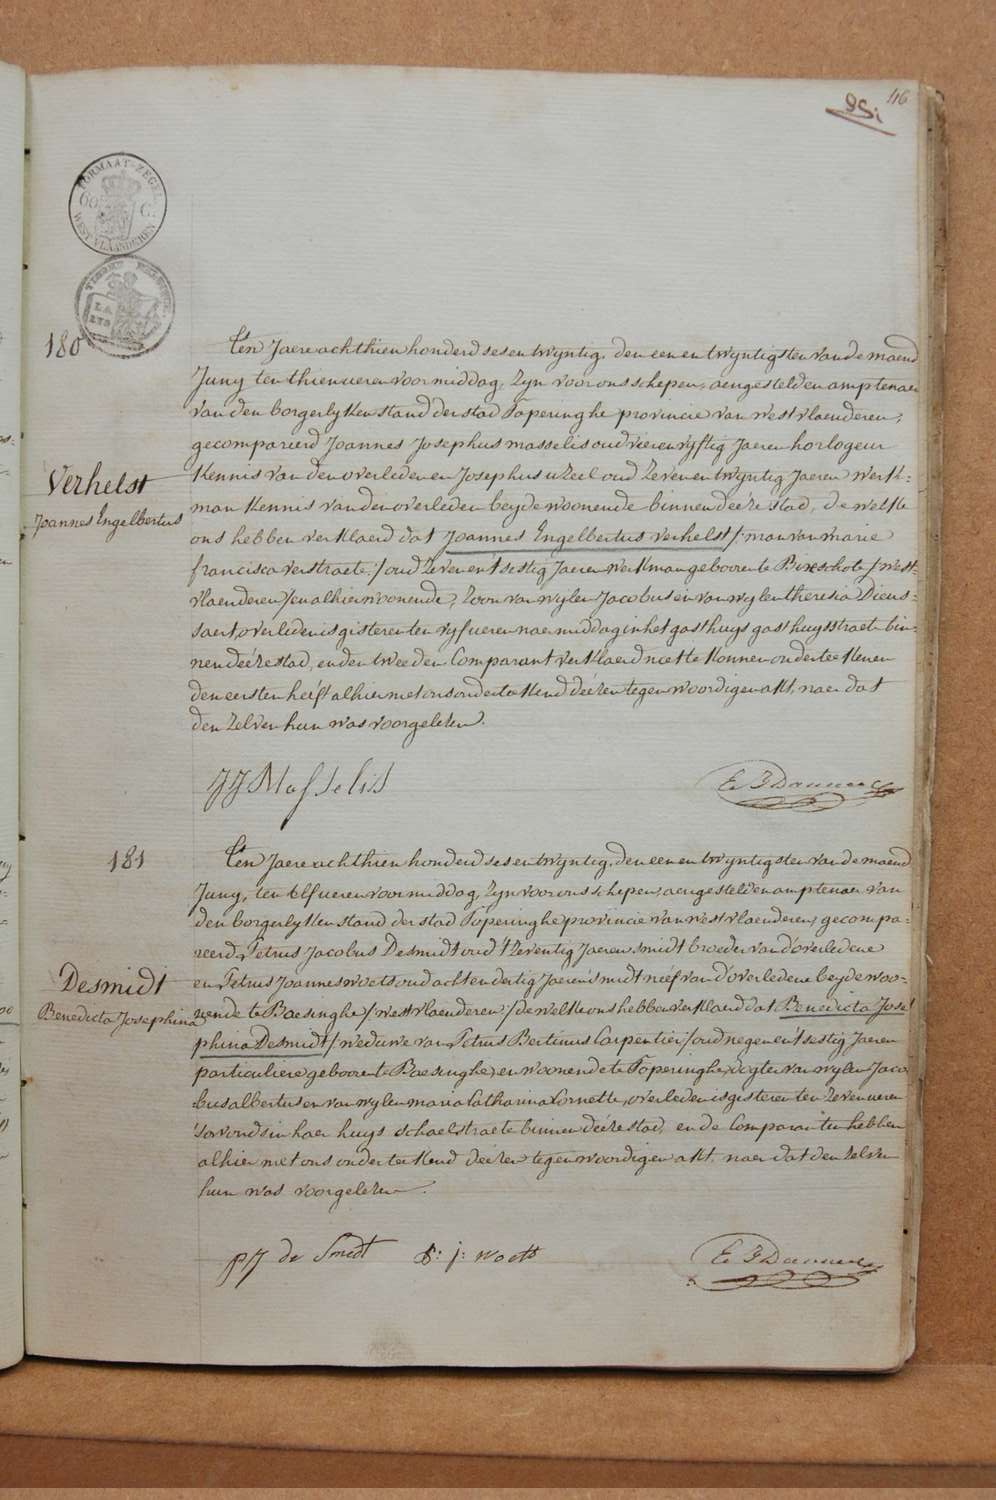 95:
46
FORMAAT-ZEGEL
60 C
WEST VLAANDEREN
180
Verhelst
Joannes Engelbertus
Ten Jaere achthien honderd sesentwyntig, den eenentwyntigsten van de maend
Juny ten thien ueren voormiddag, Zyn voor ons schepen, aengestelden amptenaer
van den borgerlyken stand der stad Poperinghe provincie van westvlaenderen,
gecompareerd Joannes Josephus masselis oud vierenvyftig Jaeren horlogeur
kennis van den overledenen Josephus uzeel oud Zevenentwyntig Jaeren werk-
man kennis van den overleden beyde woonende binnen deéze stad, de welke
ons hebben verklaerd dat Joannes Engelbertus verhelst / man van marie
francisca verstraete / oud Zeven en 't sestig Jaeren werkman geboore te Bixschote / west-
vlaenderen / en alhier woonende, Zoon van wylen Jacobus en van wylen theresia Diens-
saert, overleden is gisteren ten vyf ueren naermiddag in het gasthuys gasthuysstraete bin-
nen deéze stad, en den tweeden Comparant verklaerd niet te konnen onderteekenen
den eersten heéft alhier met ons onderteekend deézen tegenwoordigen akt, naer dat
den Zelven hun was voorgelezen.
JJ Masselis
181
Desmidt
Benedicta Josephina
Ten Jaere achthien honderd sesentwyntig, den eenentwyntigsten van de maend
Juny, ten Elf ueren voormiddag, Zyn voor ons schepen, aengestelden amptenaer van
den borgerlyken stand der stad Poperinghe provincie van westvlaenderen, gecompa-
reerd Petrus Jacobus Desmidt oud 't Zeventig Jaeren smidt broeder van d'overledene
en Petrus Joannes woets oud achtendertig Jaeren smidt neef van d'overledene beyde woo-
nende te Boesinghe / westvlaenderen / de welke ons hebben verklaerd dat Benedicta Jose-
phina Desmidt / weduwe van Petrus Bertinus Carpentier / oud negen en 't sestig Jaeren
particuliere geboore te Boesinghe, en woonende te Poperinghe, dogter van wylen Jaco-
bus albertus en van wylen maria Catharina Cornette, overleden is gisteren ten Zeven ueren
s'avonds in haer huys schaelstraete binnen deéze stad, en de Comparanten hebben
alhier met ons onderteekend deézen tegenwoordigen akt, naer dat den Zelven
hun was voorgelezen.
pJ de Smedt P: j: woets